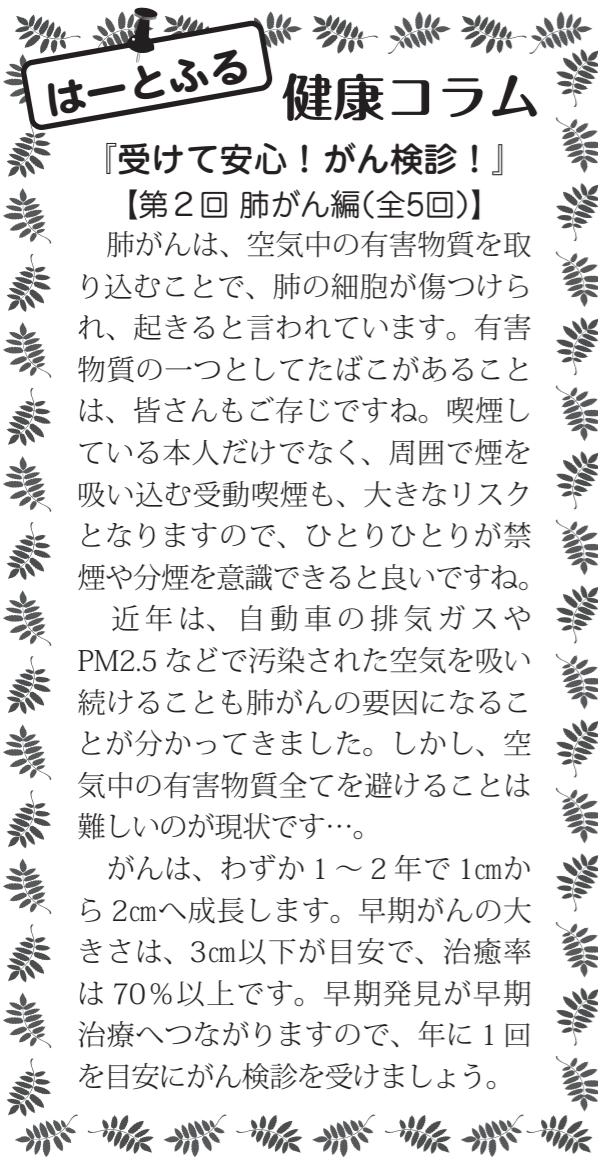 はーとふる
健康コラム
『受けて安心！がん検診！』
【第２回 肺がん編(全5回)】
　肺がんは、空気中の有害物質を取
り込むことで、肺の細胞が傷つけら
れ、起きると言われています。有害
物質の一つとしてたばこがあること
は、皆さんもご存じですね。喫煙し
ている本人だけでなく、周囲で煙を
吸い込む受動喫煙も、大きなリスク
となりますので、ひとりひとりが禁
煙や分煙を意識できると良いですね。
　近年は、自動車の排気ガスや
PM2.5 などで汚染された空気を吸い
続けることも肺がんの要因になるこ
とが分かってきました。しかし、空
気中の有害物質全てを避けることは
難しいのが現状です…。
　がんは、わずか 1 ～ 2 年で 1㎝か
ら 2㎝へ成長します。早期がんの大
きさは、3㎝以下が目安で、治癒率
は 70％以上です。早期発見が早期
治療へつながりますので、年に 1 回
を目安にがん検診を受けましょう。